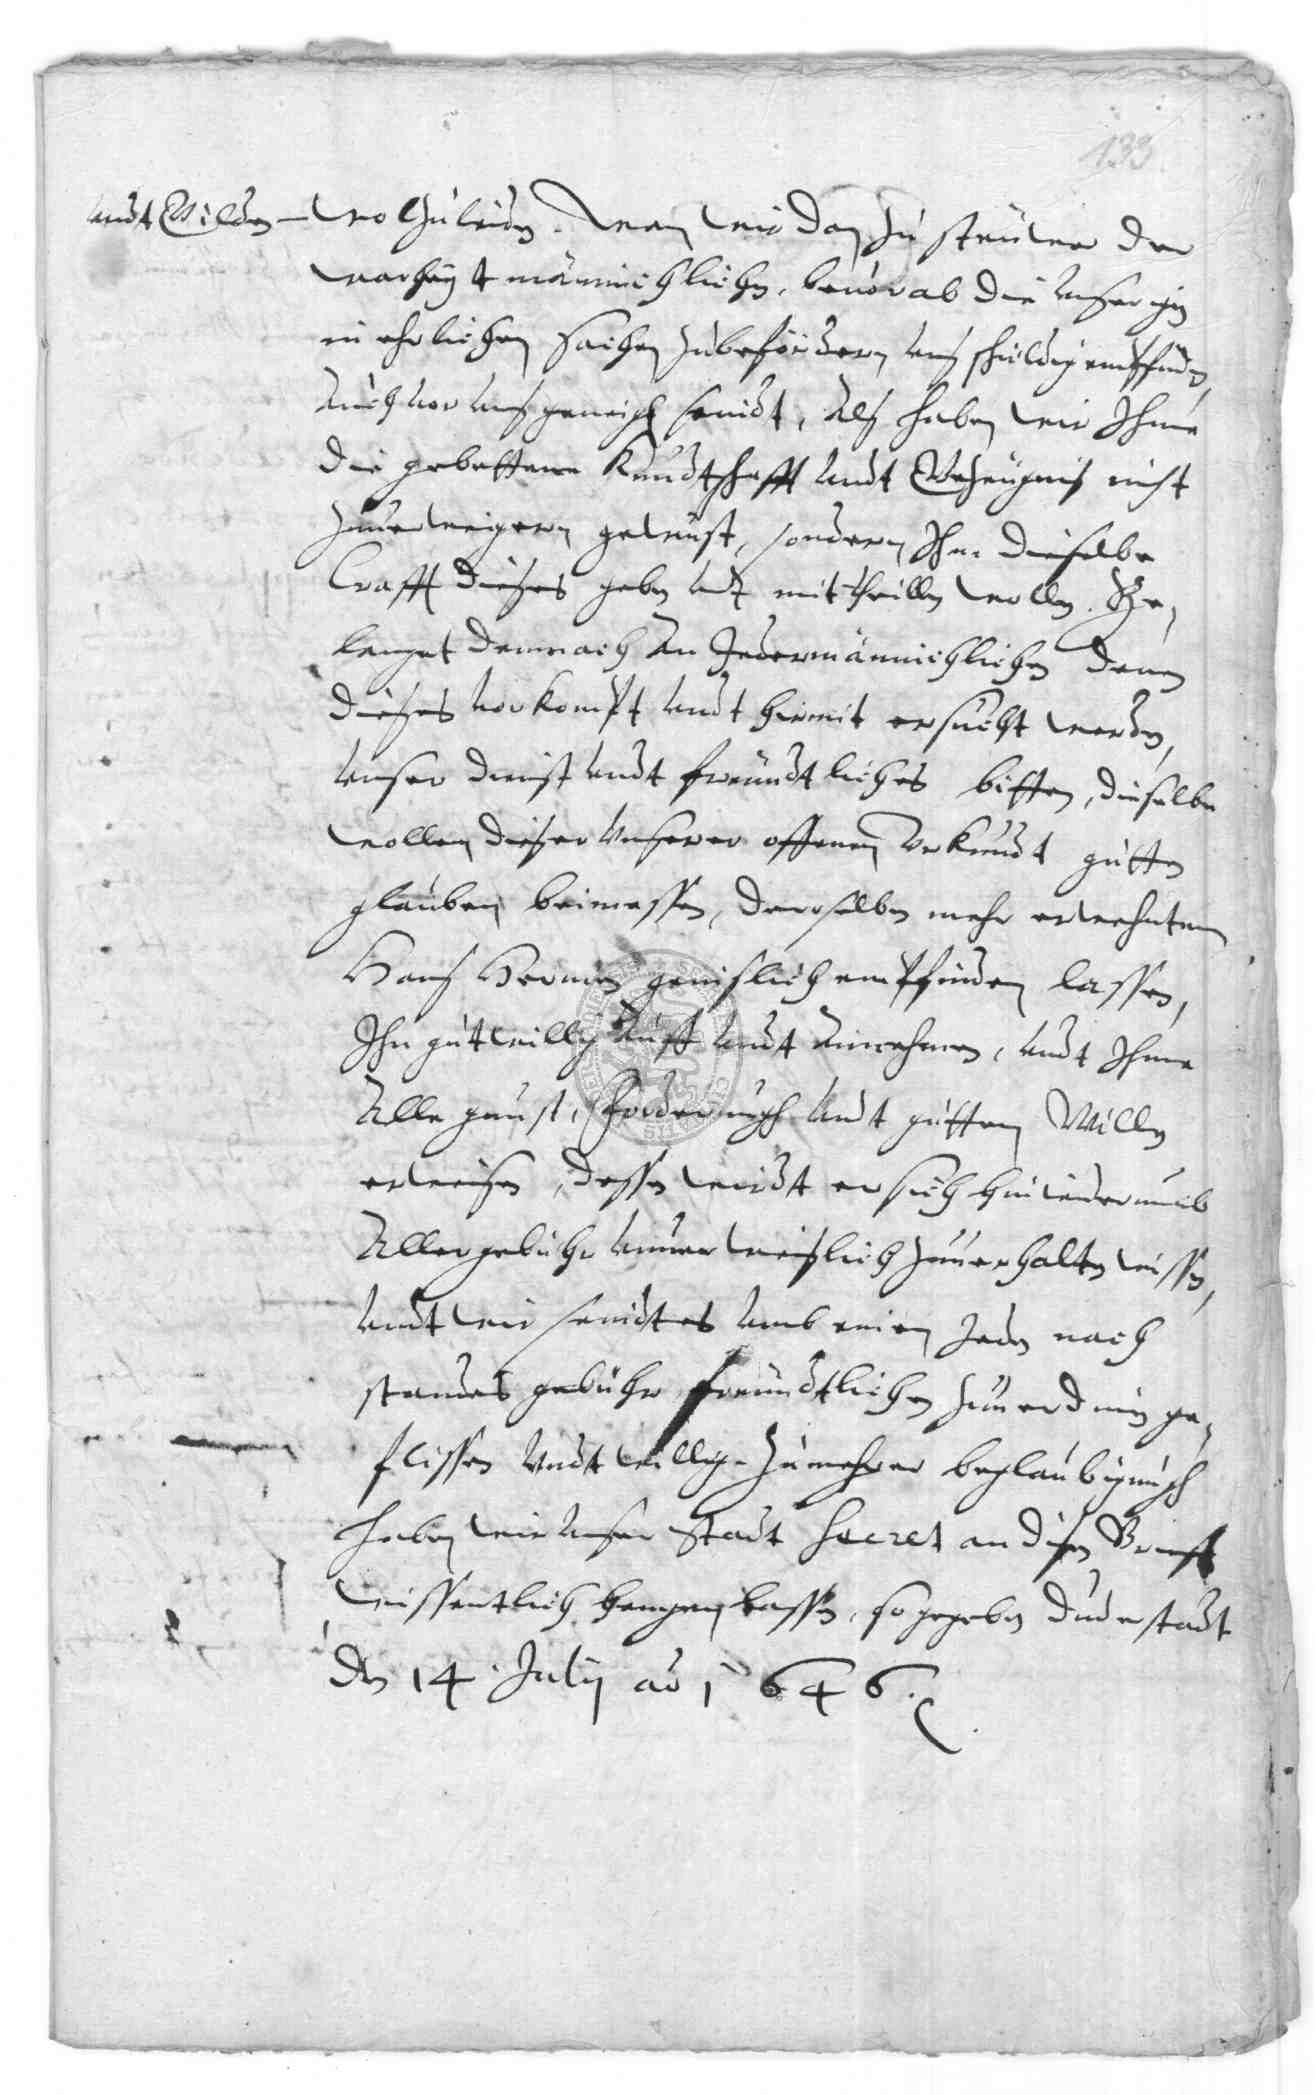 133
undt Gilden wol zu leiden. Wan wir dan zu steuwer der
warheyt männichlichen, bevorab die unserigen
in ehrlichen sachen zubefördern uns schuldig empfinden,
auch vor uns geneigt seindt, Als haben wir Ihme
die gebettene Kundtschafft undt Gezeugnis nicht
zuverweigern gewust, sondern Ihm dieselbe
Crafft dieses geben undt mittheillen wollen. Ge„
langet demnach an Jedermännichlichen denen
dieses vorkompt undt hiermit ersucht werden,
unser dienst undt freundtliches bitten, dieselbe
wollen dieser unserer offenen Urkundt gutten
glauben beimessen, deroselben mehr erwehnten
Hans Herman genislich empfinden lassen,
Ihn gutwillig auff undt annehmen, undt Ihme
alle gunst, forderungh undt gutten Willen
erweisen, dessen wirdt er sich hinwiderumb
aller gebühr unverweislich zuverhalten wissen,
undt wir seindt es umb einen Jeden nach
standes gebühr freundtlichen zuverdinen ge„
flissen undt willig. Zu mehrer beglaubigungh
haben wir unser Stadt Secret an disen Brieff
wissentlich hangen lassen, so gegeben Duderstadt
den 14 July ao 1646.